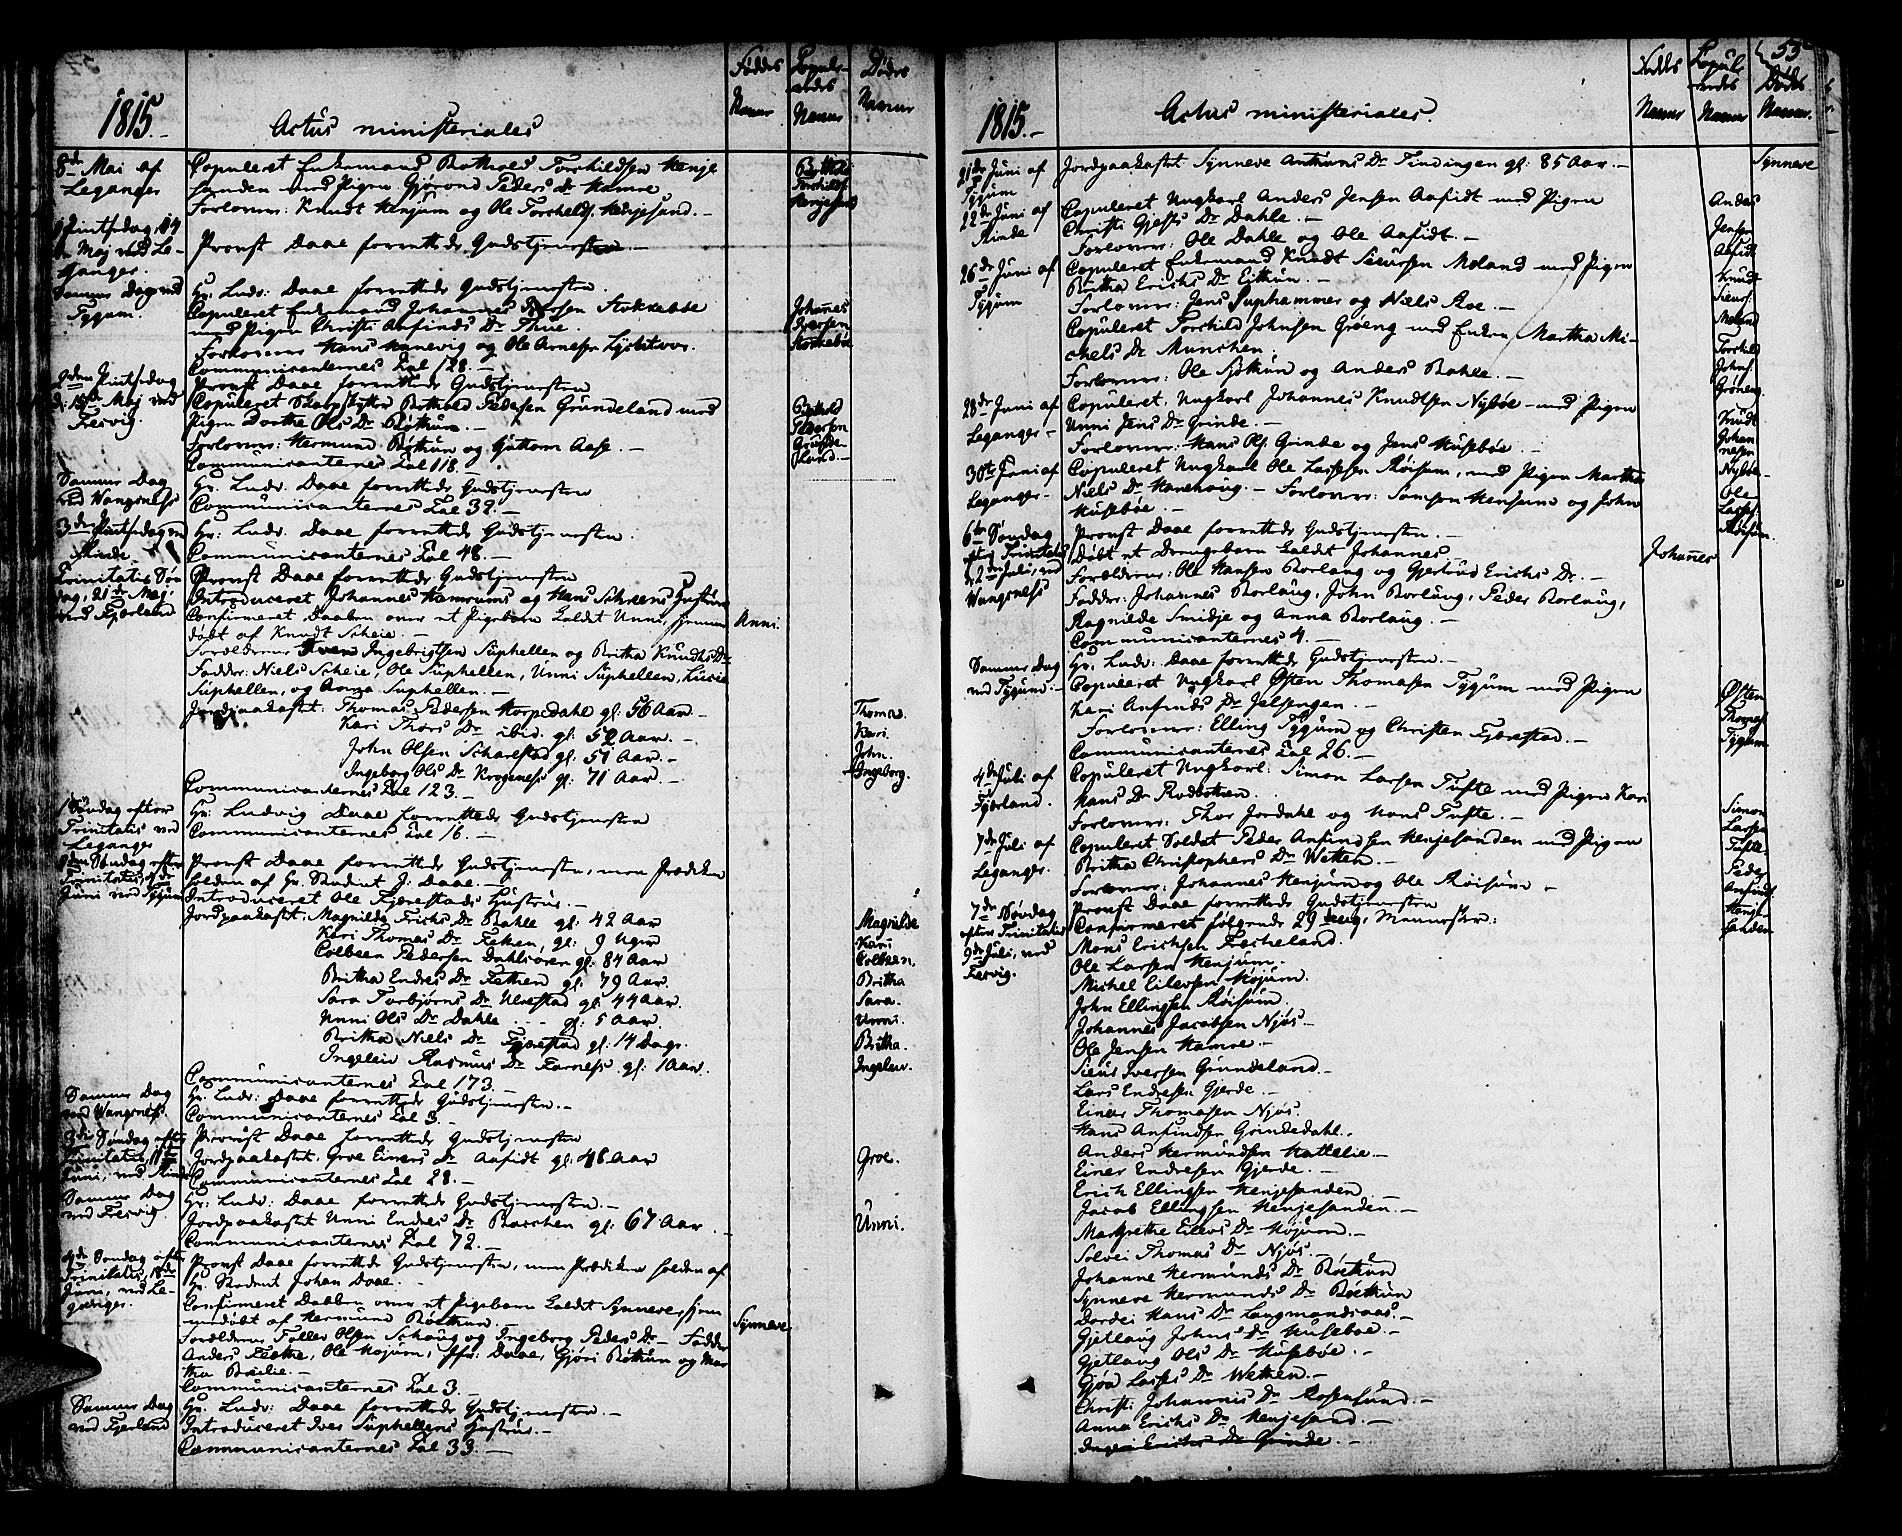 1815.
Actus ministeriales
Føddes Navne
Copule-rendes Navne
Dødes Navne
8de Mai af Leganger
Copuleret Enkemand Botholf Torchildsen Henje
sanden med Pigen Gjørond Peders Dr Hamre
Forlovere: Knudt Henjum og Ole Torchilds. Henjesand. -
Botholf
Torchilds.
Henjesand
1 Pintsedag, 14
Maj ved Le-
ganger.
Provst Daae forrettede Gudstjenesten -
Samme Dag ved
Tygum.
Hr. Ludv: Daae forrettede Gudstjenesten.
Copuleret Enkemand Johannes Iversen Stokkebøe
med Pigen Christi Anfinds Dr Thue.
Forlovere Hans Hanevig og Ole Arnesen
Communicanternes Tal 128. -
Johannes
Iversen
Stokkebøe
2den Pintsedag
d: 15de Maj ved
Fresvig.
Provst Daae forrettede Gudstjenesten
Copuleret Skarpskytter Bothold Pedersen Grindeland med
Pigen Dorthe Ols Dr Bøthun. -
Forlovere: Hermund Bøthun og Guttorm Aase. -
Communicanternes Tal 118. -
Bothold
Pedersen
Grinde-
land. -
Samme Dag
ved Wangsness
Hr. Ludv: Daae forrettede Gudstjenesten
Communicanternes Tal 32. -
3die Pintsedag ved
Rinde.
Hr. Ludv: Daae forrettede Gudstjenesten.
Communicanternes Tal 48. -
Trinitatis Søn
dag, 21de Maj,
ved Fjærland
Provst Daae forrettede Gudstjenesten
Introduceret Johannes Hamrums og Hans Schreens Hustrue
Confirmeret Daaben over et Pigebarn kaldet Unni, hjemme
døbt af Knudt Scheie. -
Forældrene Iver Ingebrigtsen Suphellen og Britha Knudts Dr
Fadder: Niels Scheie, Ole Suphellen, Unni Suphellen, Lucie
Suphellen, og Anna Suphellen. -
Unni.
Jordpaakastet: Thomas Pedersen Horpedahl gl: 56 Aar. -
Kari Thors Dr ibid. gl: 52 Aar. -
John Olsen Scharestad gl: 51 Aar. -
Ingeborg Ols Dr Krogeness gl: 71 Aar. -
Communicanternes Tal 123. -
Thomas.
Kari.
John.
Ingeborg.
1 Søndag efter
Trinitatis ved
Leganger
Hr: Ludvig Daae forrettede Gudstjenesten
Communicanternes Tal 16. -
2den Søndag efter
Trinitatis, 4de
Juni ved Tygum
Provst Daae forrettede Gudstjenesten, men Prædiken
holden af Hr. Student J: Daae. -
Introduceret Ole Fjærestads Hustrue. -
Jordpaakastet: Magnilda Erichs Dr Bahle gl: 42 Aar
Kari Thomas Dr Feten, gl: 9 Uger
Colbeen Pedersen Dahlsøren gl: 84 Aar
Britha Endres Dr Fetten gl: 79 Aar.
Sara Torbjørns Dr Ulvestad gl: 44 Aar.
Unni Ols Dr Dahle gl: 5 Aar.
Britha Niels Dr Fjærestad gl: 14 Dage.
Ingelein Rasmus Dr Farness gl: 1 Aar.
Communicanternes Tal 173. -
Magnilde
Kari
Colbeen.
Britha
Sara.
Unni.
Britha.
Ingelein.
Samme Dag
ved Wangsness.
Hr. Ludv: Daae forrettede Gudstjenesten. -
Communicanternes Tal 3. -
3die Søndag efter
Trinitatis, 11te
Juni, ved Rinde
Provst Daae forrettede Gudstjenesten
Jordpaakastet: Groe Einers Dr Aafidt gl: 48 Aar
Communicanternes Tal 28. -
Groe.
Samme Dag
ved Fresvig.
Hr. Ludv: Daae forrettede Gudstjenesten. -
Jordpaakastet Unni Endres Dr Bacchen gl: 67 Aar
Communicanternes Tal 72. -
Unni.
4de Søndag efter
Trinitatis, 18de
Juni, ved Le-
ganger.
Provst Daae forrettede Gudstjenesten, men Prædiken holden af
Hr. Student Johan Daae. -
Confirmeret Daaben over et Pigebarn kaldet Synneve, hjem
medøbt af Hermund Bøthun. -
Forældrene Toller Olsen Schoug og Ingeborg Peders Dr - Fadder
Anders Fethe, Ole Hojum, Jfr: Daae, Gjøri Bøthun og Mar
tha Bælie. -
Communicanternes Tal 3. -
Synneve
Samme Dag
ved Fjærland
Hr: Ludv: Daae forrettede Gudstjenesten. -
Introduceret Iver Suphellens Hustrue. -
Communicanternes Tal 33. -
53
1815. -
Actus ministeriales.
Føddes Navne
Copul-erendes Navne
Dødes Navne.
21de Juni af
Tygum
Jordpaakastet Synneve Antums Dr Tindingen gl: 85 Aar. -
Synneve
22de Juni af
Rinde
Copuleret Ungkarl Anders Jensen Aafidt med Pigen
Christi Gjests Dr Dahle. -
Forlovere: Ole Dahle og Ole Aafidt. -
Anders
Jensen
Aafidt
26de Juni af
Tygum
Copuleret Enkemand Knudt Siursen Meland med Pigen
Britha Erichs Dr Eithun. -
Forlovere: Jens Suphammer og Niels Roe. -
Copuleret Torchild Johnsen Grøeng med Enken Martha Mi-
chels Dr Munchen.
Forlovere: Ole Sjøthun og Anders Bahle. -
Knudt
Siurs.
Meland
Torchild
Johns.
Grøeng.
28de Juni af
Leganger -
Copuleret, Ungkarl Johannes Knudtsen Nybøe - med Pigen
Unni Jens Dr Grinde. -
Forlovere: Hans Ols. Grinde og Jens Husebøe. -
Knudt
Johan
nesen
Nybøe -
30te Juni af
Leganger -
Copuleret Ungkarl Ole Lassesen Røisum, med Pigen Martha
Niels Dr Hanehoug. - Forlovere: Samson Henjum og John
Husebøe. -
Ole
Lasses.
Røisum.
6te Søndag
efter Trinitatis
d: 2den Juli, ved
Wangsness
Provst Daae forrettede Gudstjenesten. -
Døbt et Drengebarn kaldet Johannes -
Forældrene: Ole Hansen Borlaug og Gjertrud Erichs Dr. -
Fadder: Johannes Borlaug, John Borlaug, Peder Borlaug,
Ragnilde Smidje og Anna Borlaug. -
Communicanternes 4. -
Johannes
Samme Dag
ved Tygum. -
Hr. Ludv: Daae forrettede Gudstjenesten. -
Copuleret Ungkarl Østen Thomasen Tygum med Pigen
Kari Anfinds Dr Jelsengen. -
Forlovere: Elling Tygum og Christen Fjærestad. -
Communicanternes Tal 26. -
Østen
Thomas.
Tygum
4de Juli af
Fjærland.
Copuleret Ungkarl: Simon Larsen Tufte med Pigen Kari
Hans Dr Rødbotten.
Forlovere: Thor Jordahl og Hans Tufte. -
Simon
Larsen
Tufte.
7de Juli af
Leganger.
Copuleret Soldat Peder Anfindsen Henjesanden med Pigen
Britha Christophers Dr Wetten. -
Forlovere: Johannes Henjum og Ole Røisum -
Peder
Anfinds.
Henje-
sanden
7de Søndag
efter Trinitatis
9de Juli, ved
Fresvig.
Provst Daae forrettede Gudstjenesten
Confirmeret følgende 29 unge Mennesker:
Mons Erichsen Fæcheland.
Ole Larsen Henjum.
Michel Eilersen Højum.
John Ellingsen Røisum.
Johannes Jacobsen Njøs. -
Ole Jensen Hamre. -
Siur Iversen Grindeland. -
Lars Endresen Gjerde. -
Einer Thomasen Njøs.
Hans Anfindsen Grindedahl.
Anders Hermundsen Hattelie -
Einer Endresen Gjerde. -
Erich Ellingsen Henjesanden
Jacob Ellingsen Henjesanden. -
Margrethe Eilers Dr Højum. -
Solvei Thomas Dr Njøs. -
Johanne Hermunds Dr Bøthun
Synneve Hermunds Dr Bøthun
Dordei Hans Dr Laugmandsaas. -
Gjetlaug Johns Dr Husebøe. -
Gjetlaug Ols Dr Husebøe. -
Gjøa Lasses Dr Wetten. -
Christi Johannis Dr Rosesund. -
Anna Erichs Dr Henjesand. -
Ingeri Erichs Dr Grinde. -